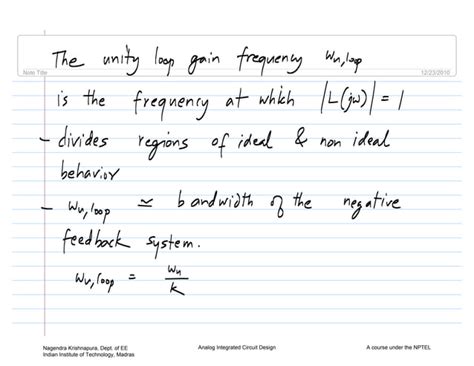 The unity loop gain frequency ωu,loop
Note Title 12/23/2010
is the frequency at which |L(jω)| = 1
- divides regions of ideal & non ideal
behavior
- ωu,loop ≃ bandwidth of the negative
feedback system.
ωu,loop = ωu/k
Nagendra Krishnapura, Dept. of EE Analog Integrated Circuit Design A course under the NPTEL
Indian Institute of Technology, Madras